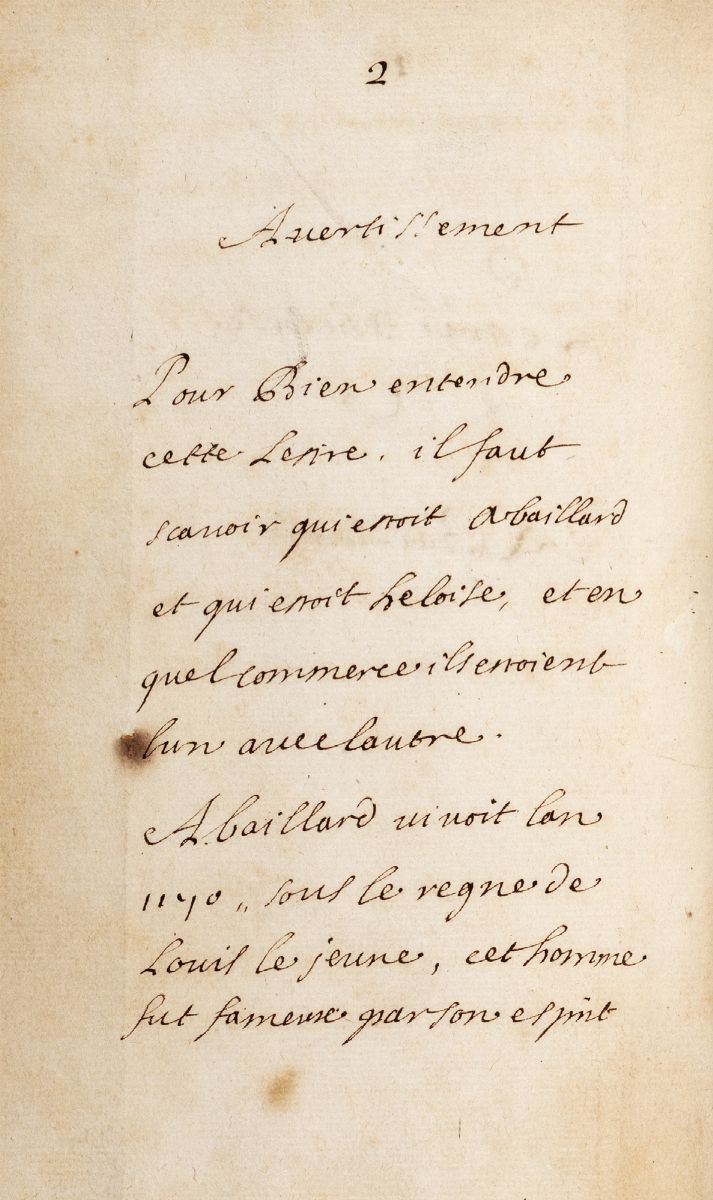 2
Avertissement
Pour Bien entendre
cette Lettre. il faut
scavoir qui estoit Abaillard
et qui estoit heloise, et en
quel commerce ils estoient
lun avec lautre.
Abaillard vivoit lan
1170,, sous le regne de
Louis le jeune, cet homme
fut fameux par son esprit